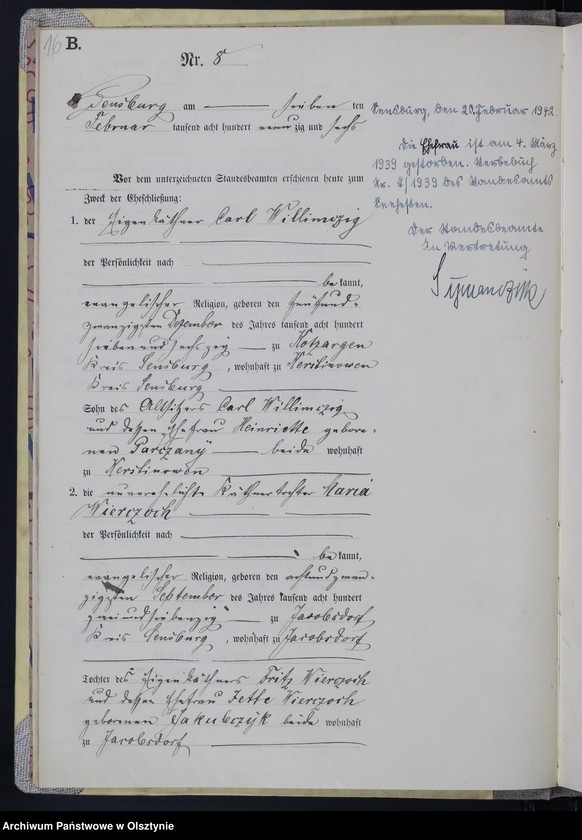 16 B.
Nr. 8
Sensburg am sieben ten
Februar tausend acht hundert neunzig und sechs
Vor dem unterzeichneten Standesbeamten erschienen heute zum
Zweck der Eheschließung:
1. der Eigenkäthner Carl Willimzig
der Persönlichkeit nach
bekannt,
evangelischer Religion, geboren den fünfund-
zwanzigsten Dezember des Jahres tausend acht hundert
siebenundsechszig zu Kotzargen
Kreis Sensburg, wohnhaft zu Kerstinowen
Kreis Sensburg
Sohn des Altsitzers Carl Willimzig
und dessen Ehefrau Heinriette gebore-
nen Parczany beide wohnhaft
zu Kerstinowen
2. die unverehelichte Käthnertochter Maria
Wierczoch
der Persönlichkeit nach
bekannt,
evangelischer Religion, geboren den achtundzwan-
zigsten September des Jahres tausend acht hundert
zweiundsiebenzig zu Jacobsdorf
Kreis Sensburg, wohnhaft zu Jacobsdorf
Tochter des Eigenkäthners Fritz Wierczoch
und dessen Ehefrau Jette Wierczoch
geborenen Jakubczyk beide wohnhaft
zu Jacobsdorf
Sensburg, den 20. Februar 1942.
Die Ehefrau ist am 4. März
1939 gestorben. Sterbebuch
Nr. 7/1939 des Standesamts
Seehesten.
Der Standesbeamte
In Vertretung
Symanczik
Archiwum Państwowe w Olsztynie